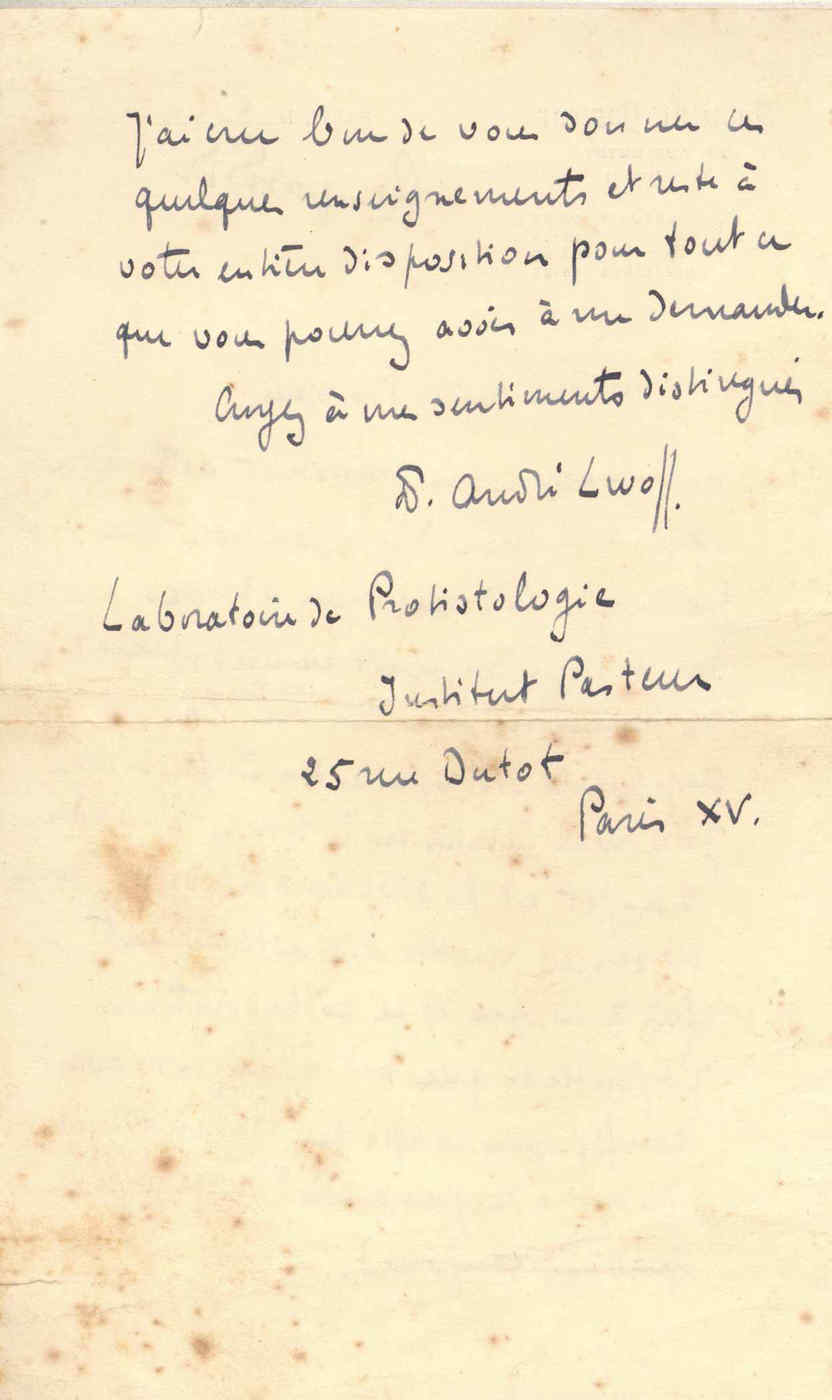 J'ai cru bon de vous donner ces
quelques renseignements et reste à
votre entière disposition pour tout ce
que vous pourrez avoir à me demander.
Croyez à mes sentiments distingués
D. André Lwoff.
Laboratoire de Protistologie
Institut Pasteur
25 rue Dutot
Paris XV.